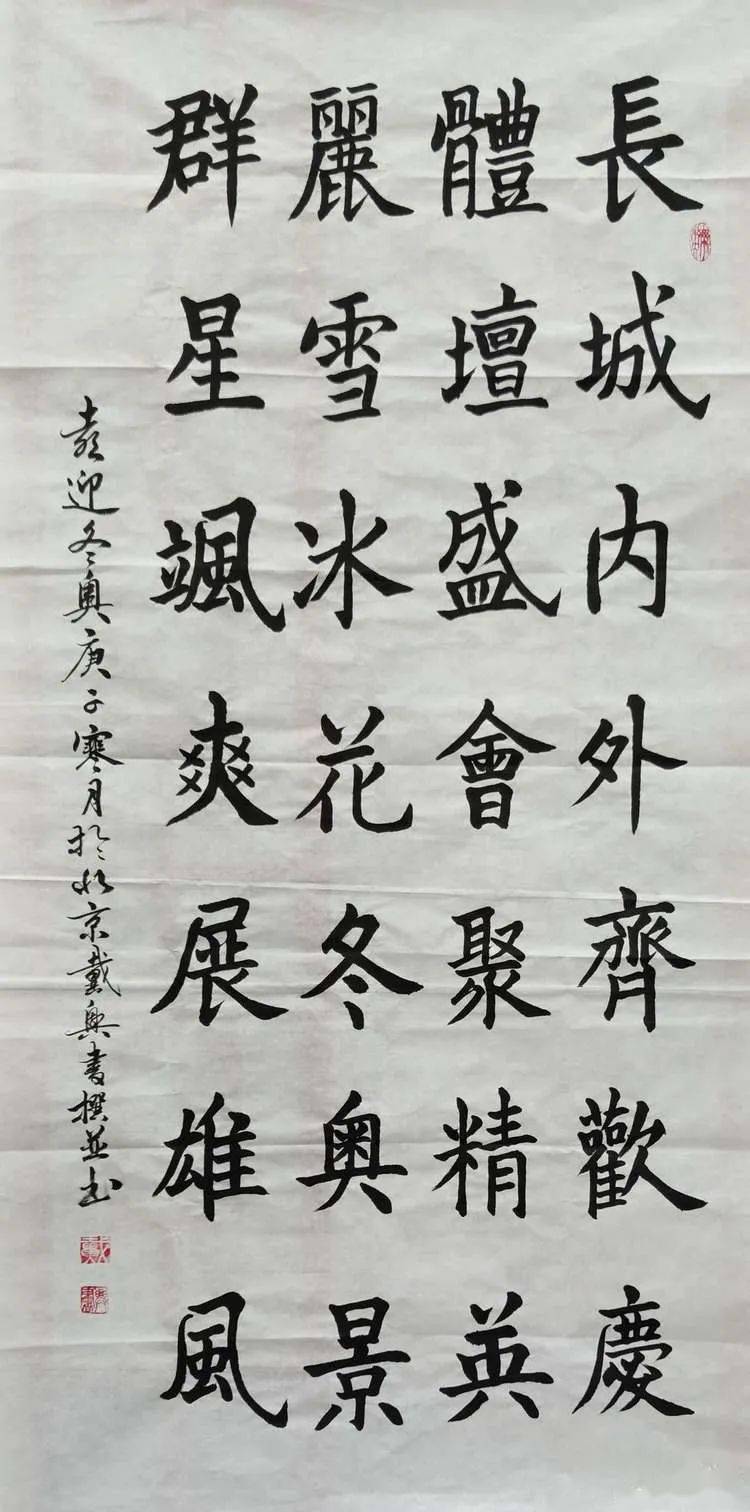 長城内外齊歡慶
體壇盛會聚精英
麗雪冰花冬奥景
群星颯爽展雄風
喜迎冬奥庚子寒月於北京戴興書撰並书